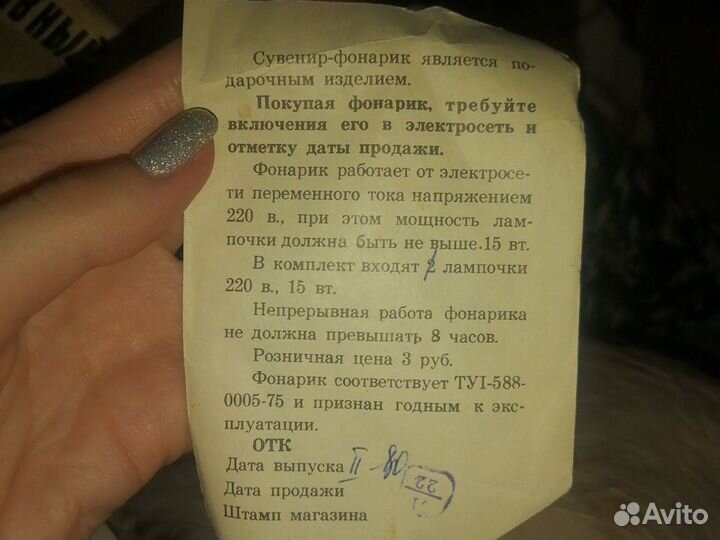 вный
Сувенир-фонарик является по-
дарочным изделием.
Покупая фонарик, требуйте
включения его в электросеть и
отметку даты продажи.
Фонарик работает от электросе-
ти переменного тока напряжением
220 в., при этом мощность лам-
почки должна быть не выше.15 вт.
В комплект входят 2 лампочки
220 в., 15 вт.
Непрерывная работа фонарика
не должна превышать 8 часов.
Розничная цена 3 руб.
Фонарик соответствует ТУI-588-
0005-75 и признан годным к экс-
плуатации.
ОТК
Дата выпуска II-80
Дата продажи
Штамп магазина
22
Avito